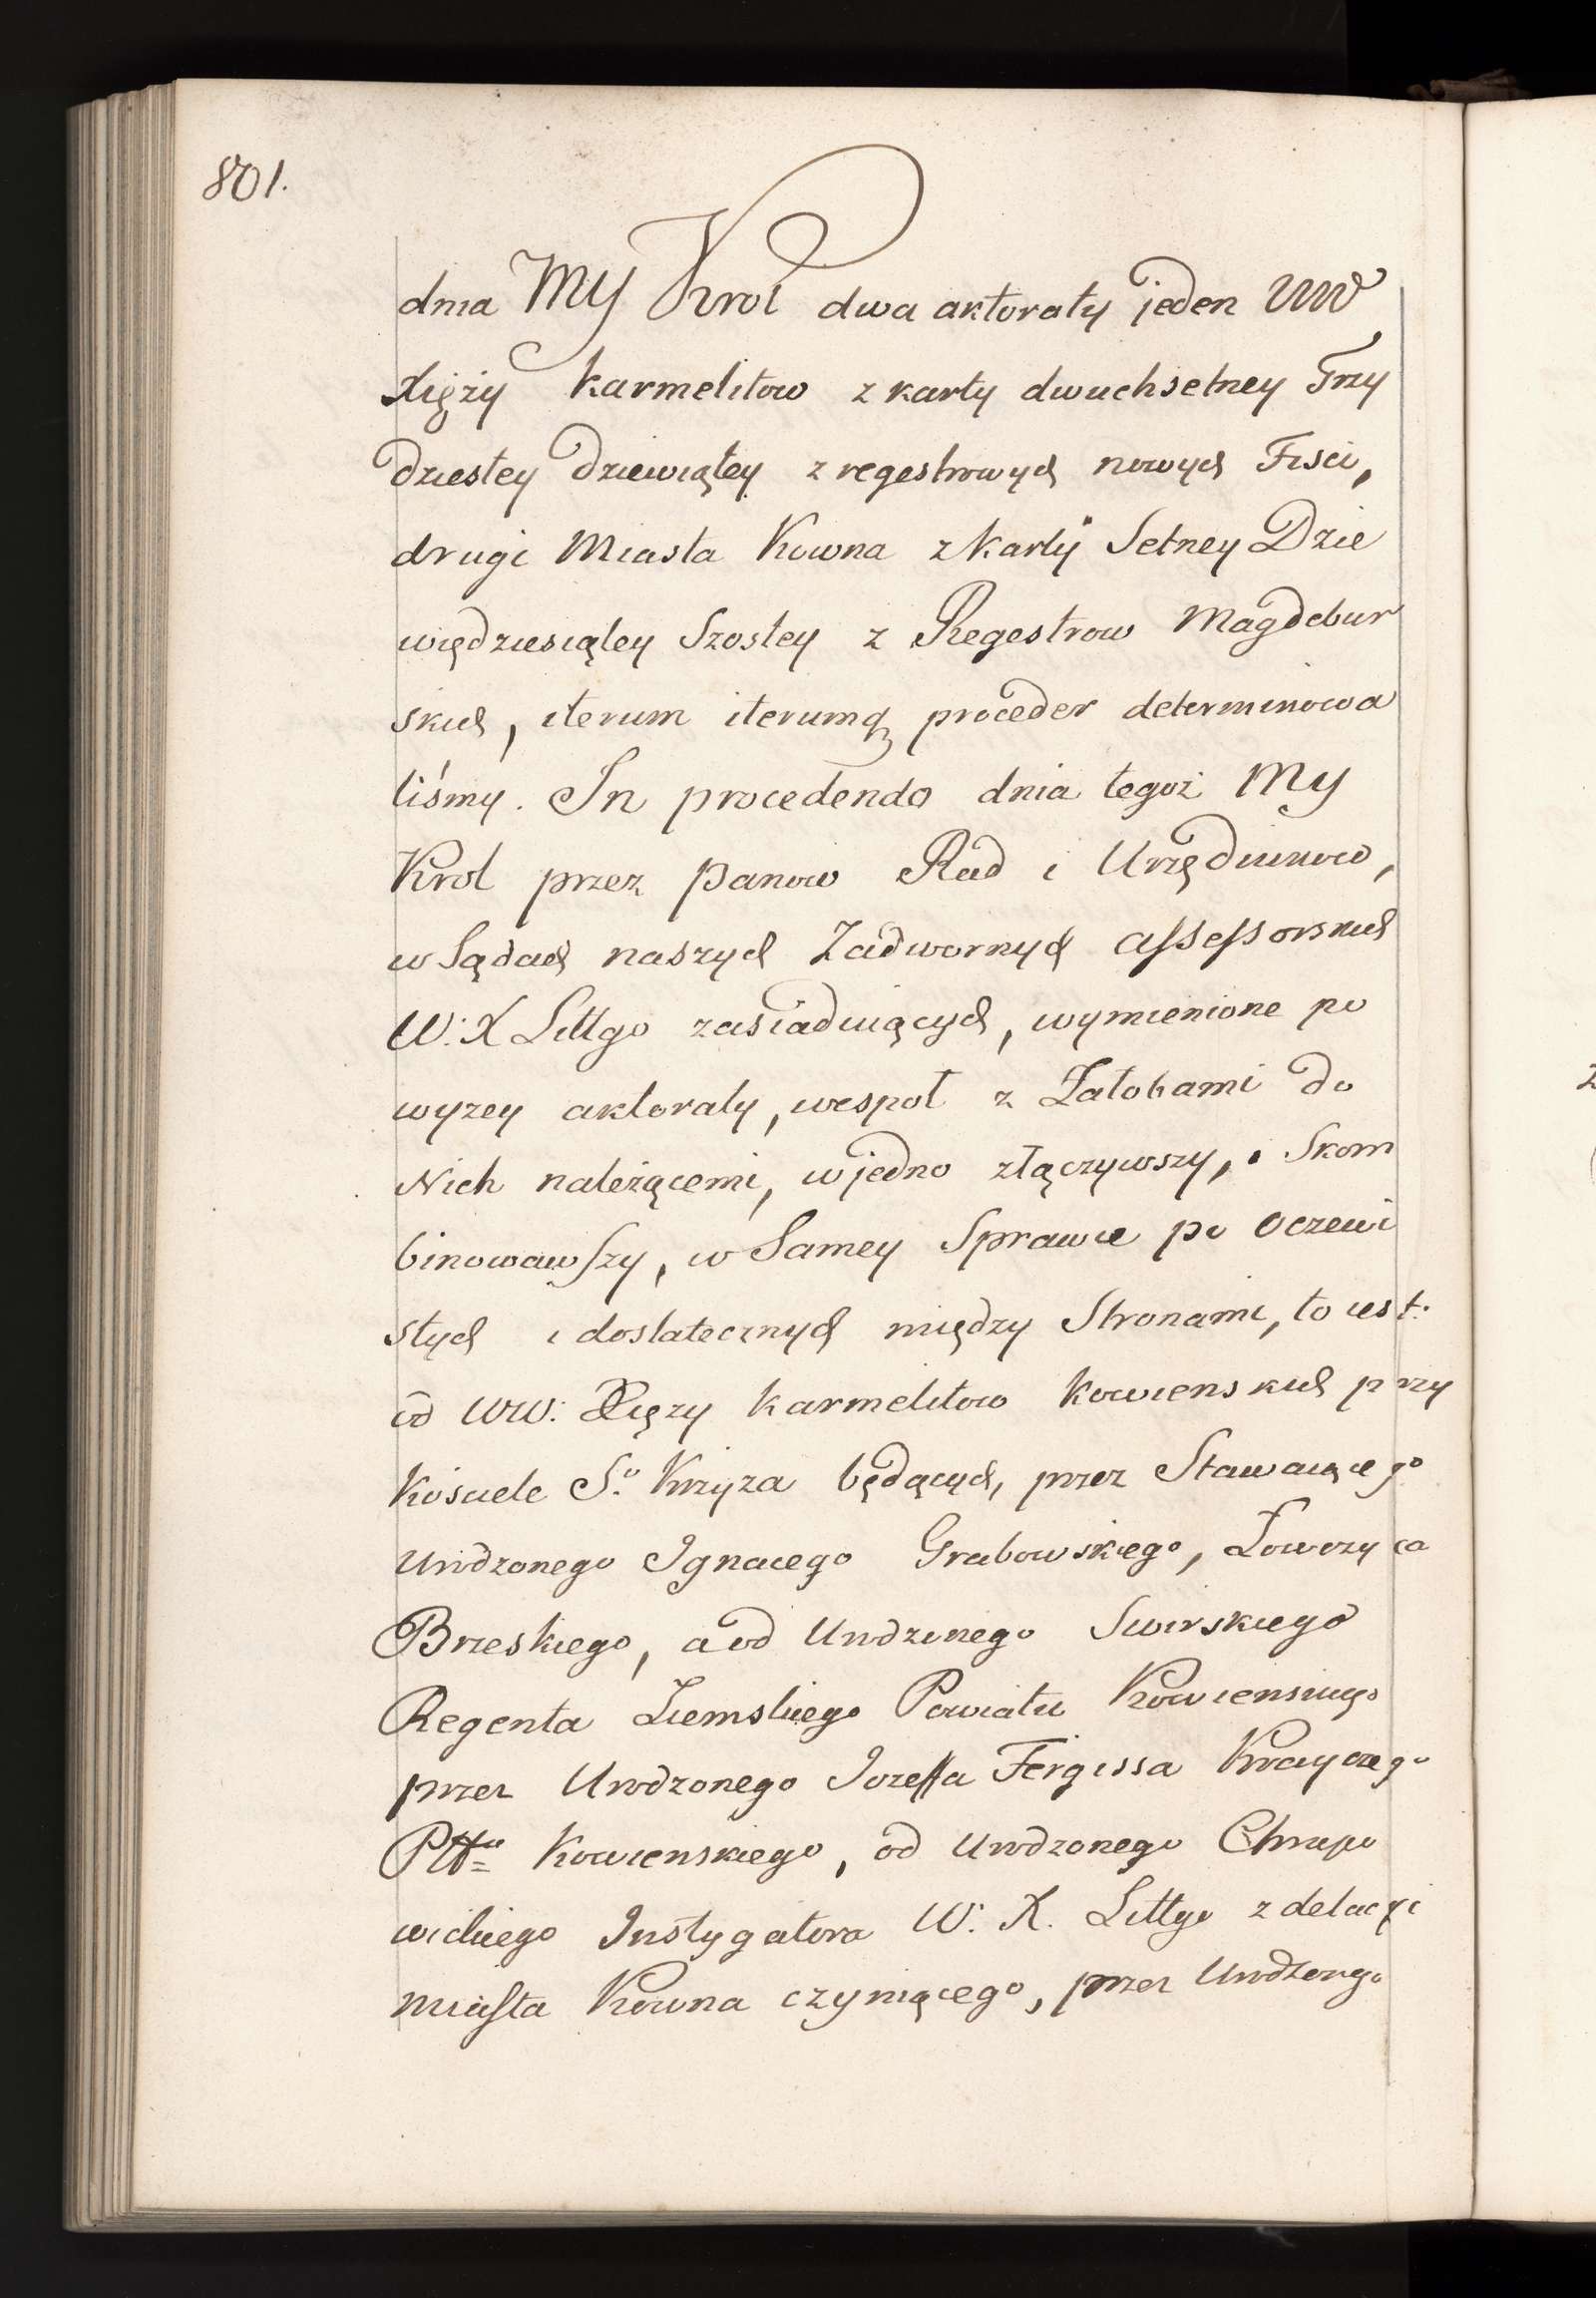 801.
dnia MY Krol dwa aktoraty jeden WW
Xięży Karmelitow z karty dwuchsetney Trzy
dziestey dziewiątey z regestrowych nowych Fisci,
drugi Miasta Kowna z Karty Setney Dzie
więdziesiątey Szostey z Regestrow Magdebur
skich, iterum iterumq proceder determinowa
liśmy. In procedendo dnia tegoż My
Krol przez Panow Rad i Urzędnikow,
w Sądach naszych Zadwornych assessorskich
W: X Littgo zasiadaiących, wymienione po
wyzey aktoraty, wespoł z Załobami do
Nich należącemi, w jedno złączywszy, Skom
binowawszy, w Samey Sprawie po oczewi
stych i dostatecznych między Stronami, to iest.
od WW: Xięzy Karmelitow Kowienskich przy
Kosciele Sº Krzyza będących, przez Stawaiącego
Urodzonego Ignacego Grabowskiego, Łowczyca
Brzeskiego, a od Urodzonego Swirskiego
Regenta Ziemskiego Powiatu Kowienskiego
przez Urodzonego Jozeffa Fergissa Krayczego
Pttu Kowienskiego, od Urodzonego Chrapo
wickiego Instygatora W: X. Littgo z delacyi
miasta Kowna czyniącego, przez Urodzonego